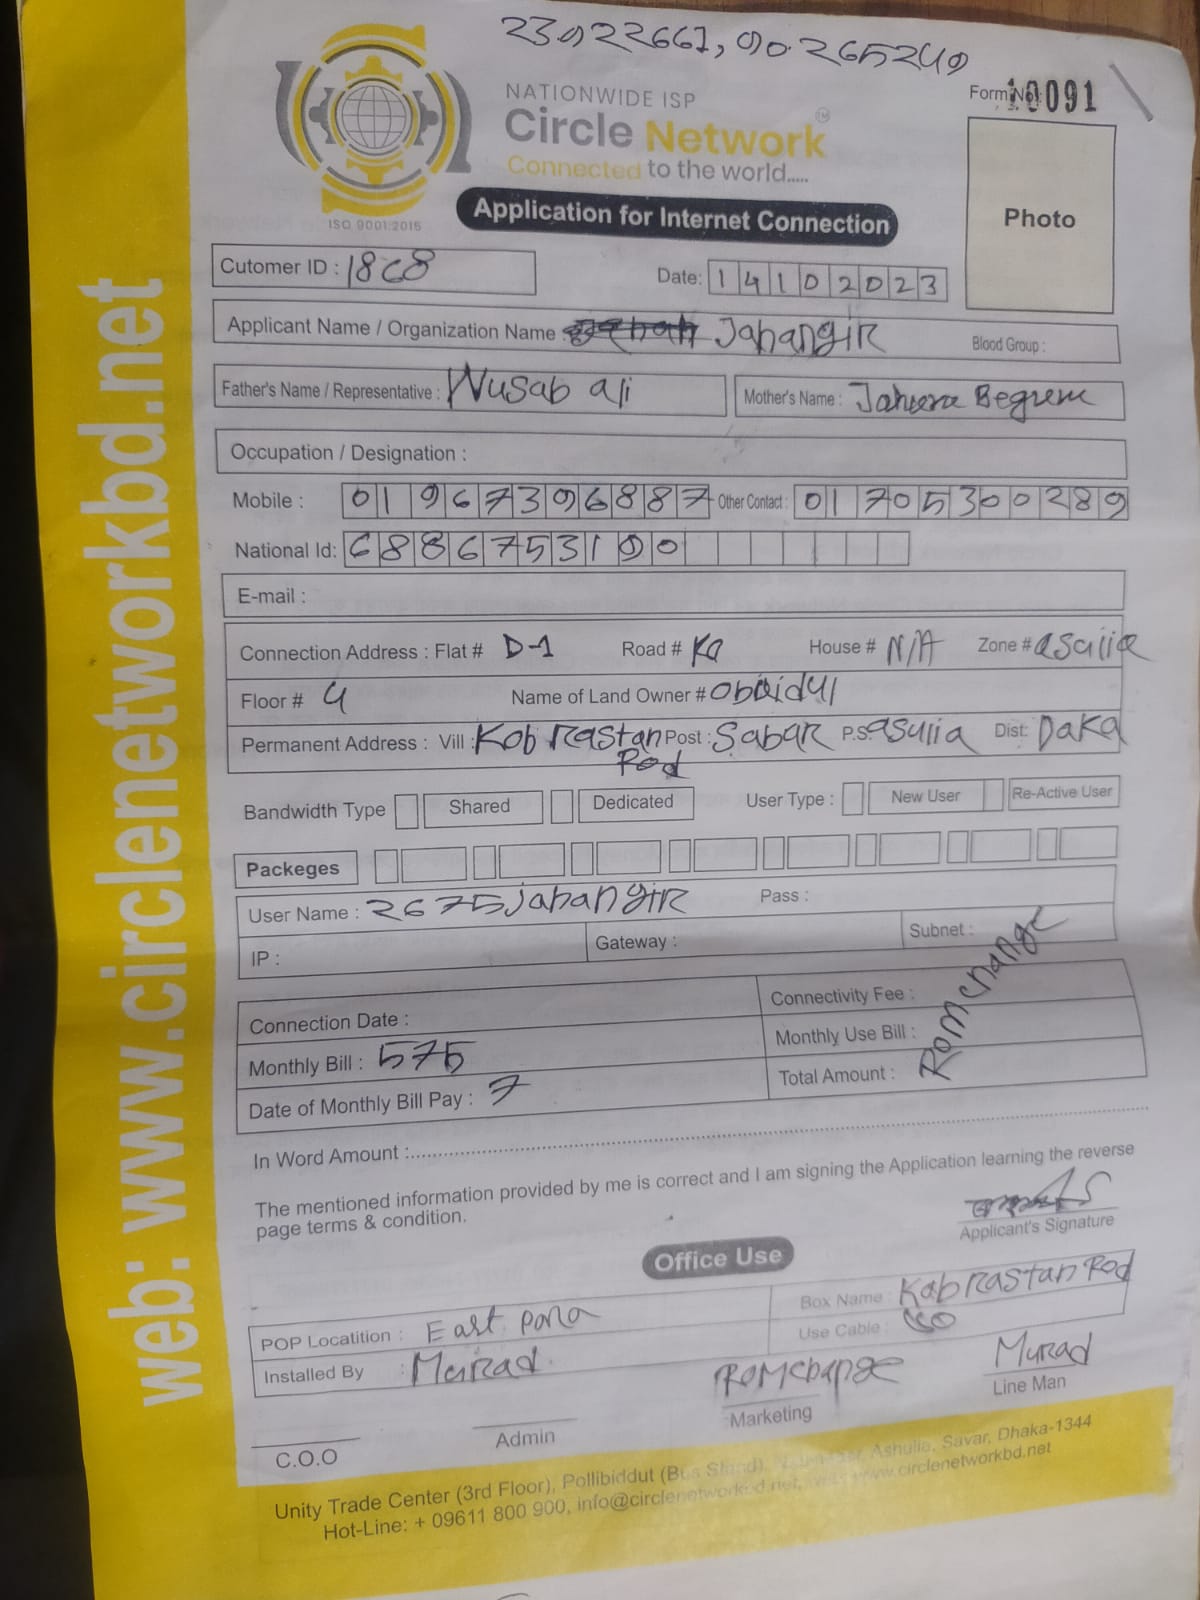 23022661, 90.265240
NATIONWIDE ISP
Circle Network
Connected to the world.....
ISO 9001:2015
Form No: 10091
Photo
Application for Internet Connection
Cutomer ID : 1868
Date: 14102023
Applicant Name / Organization Name : Jahangir
Blood Group :
Father's Name / Representative : Wusab ali
Mother's Name : Begrem
Occupation / Designation :
Mobile : 01967396887 Other Contact : 01705300289
National Id: 6886753100
E-mail :
Connection Address : Flat # D-1 Road # Ka House # N/A Zone # asulia
Floor # 4 Name of Land Owner # Obaidul
Permanent Address : Vill : Kob Rastan Rod Post : Sabar P.S. asulia Dist: Daka
Bandwidth Type Shared Dedicated User Type : New User Re-Active User
Packeges
User Name : 2675jahangir Pass :
IP : Gateway : Subnet :
Connection Date : Connectivity Fee :
Monthly Bill : 575 Monthly Use Bill :
Date of Monthly Bill Pay : 7 Total Amount :
Romchange
In Word Amount :
The mentioned information provided by me is correct and I am signing the Application learning the reverse
page terms & condition.
Applicant's Signature
Office Use
POP Locatition : East para Box Name : Kabrastan Rod
Use Cable :
Installed By : Murad
Romchange
Murad
C.O.O
Admin
Marketing
Line Man
Unity Trade Center (3rd Floor), Pollibiddut (Bus Stand), Ashulia, Savar, Dhaka-1344
Hot-Line: + 09611 800 900, info@circlenetworkbd.net, www.circlenetworkbd.net
web: www.circlenetworkbd.net